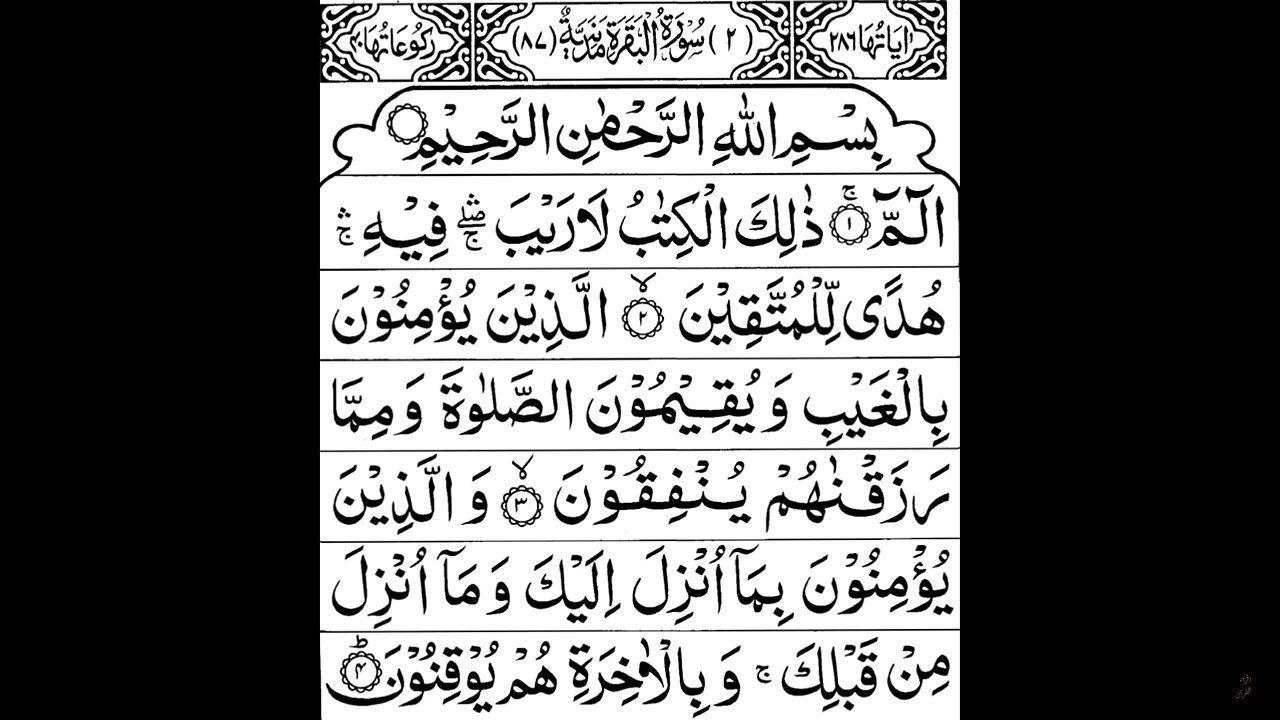 اٰيَاتُهَا ٢٨٦
(٢) سُوْرَةُ الْبَقَرَةِ مَدَنِيَّةٌ (٨٧)
رُكُوْعَاتُهَا ٤٠
بِسْمِ اللّٰهِ الرَّحْمٰنِ الرَّحِيْمِ
الٓمّٓ ۚ ١ ذٰلِكَ الْكِتٰبُ لَا رَيْبَ ۛۖۚ فِيْهِ ۛۚ
هُدًى لِّلْمُتَّقِيْنَ ۙ ٢ الَّذِيْنَ يُؤْمِنُوْنَ
بِالْغَيْبِ وَ يُقِيْمُوْنَ الصَّلٰوةَ وَ مِمَّا
رَزَقْنٰهُمْ يُنْفِقُوْنَ ۙ ٣ وَ الَّذِيْنَ
يُؤْمِنُوْنَ بِمَاۤ اُنْزِلَ اِلَيْكَ وَ مَاۤ اُنْزِلَ
مِنْ قَبْلِكَ ۚ وَ بِالْاٰخِرَةِ هُمْ يُوْقِنُوْنَ ؕ ٤